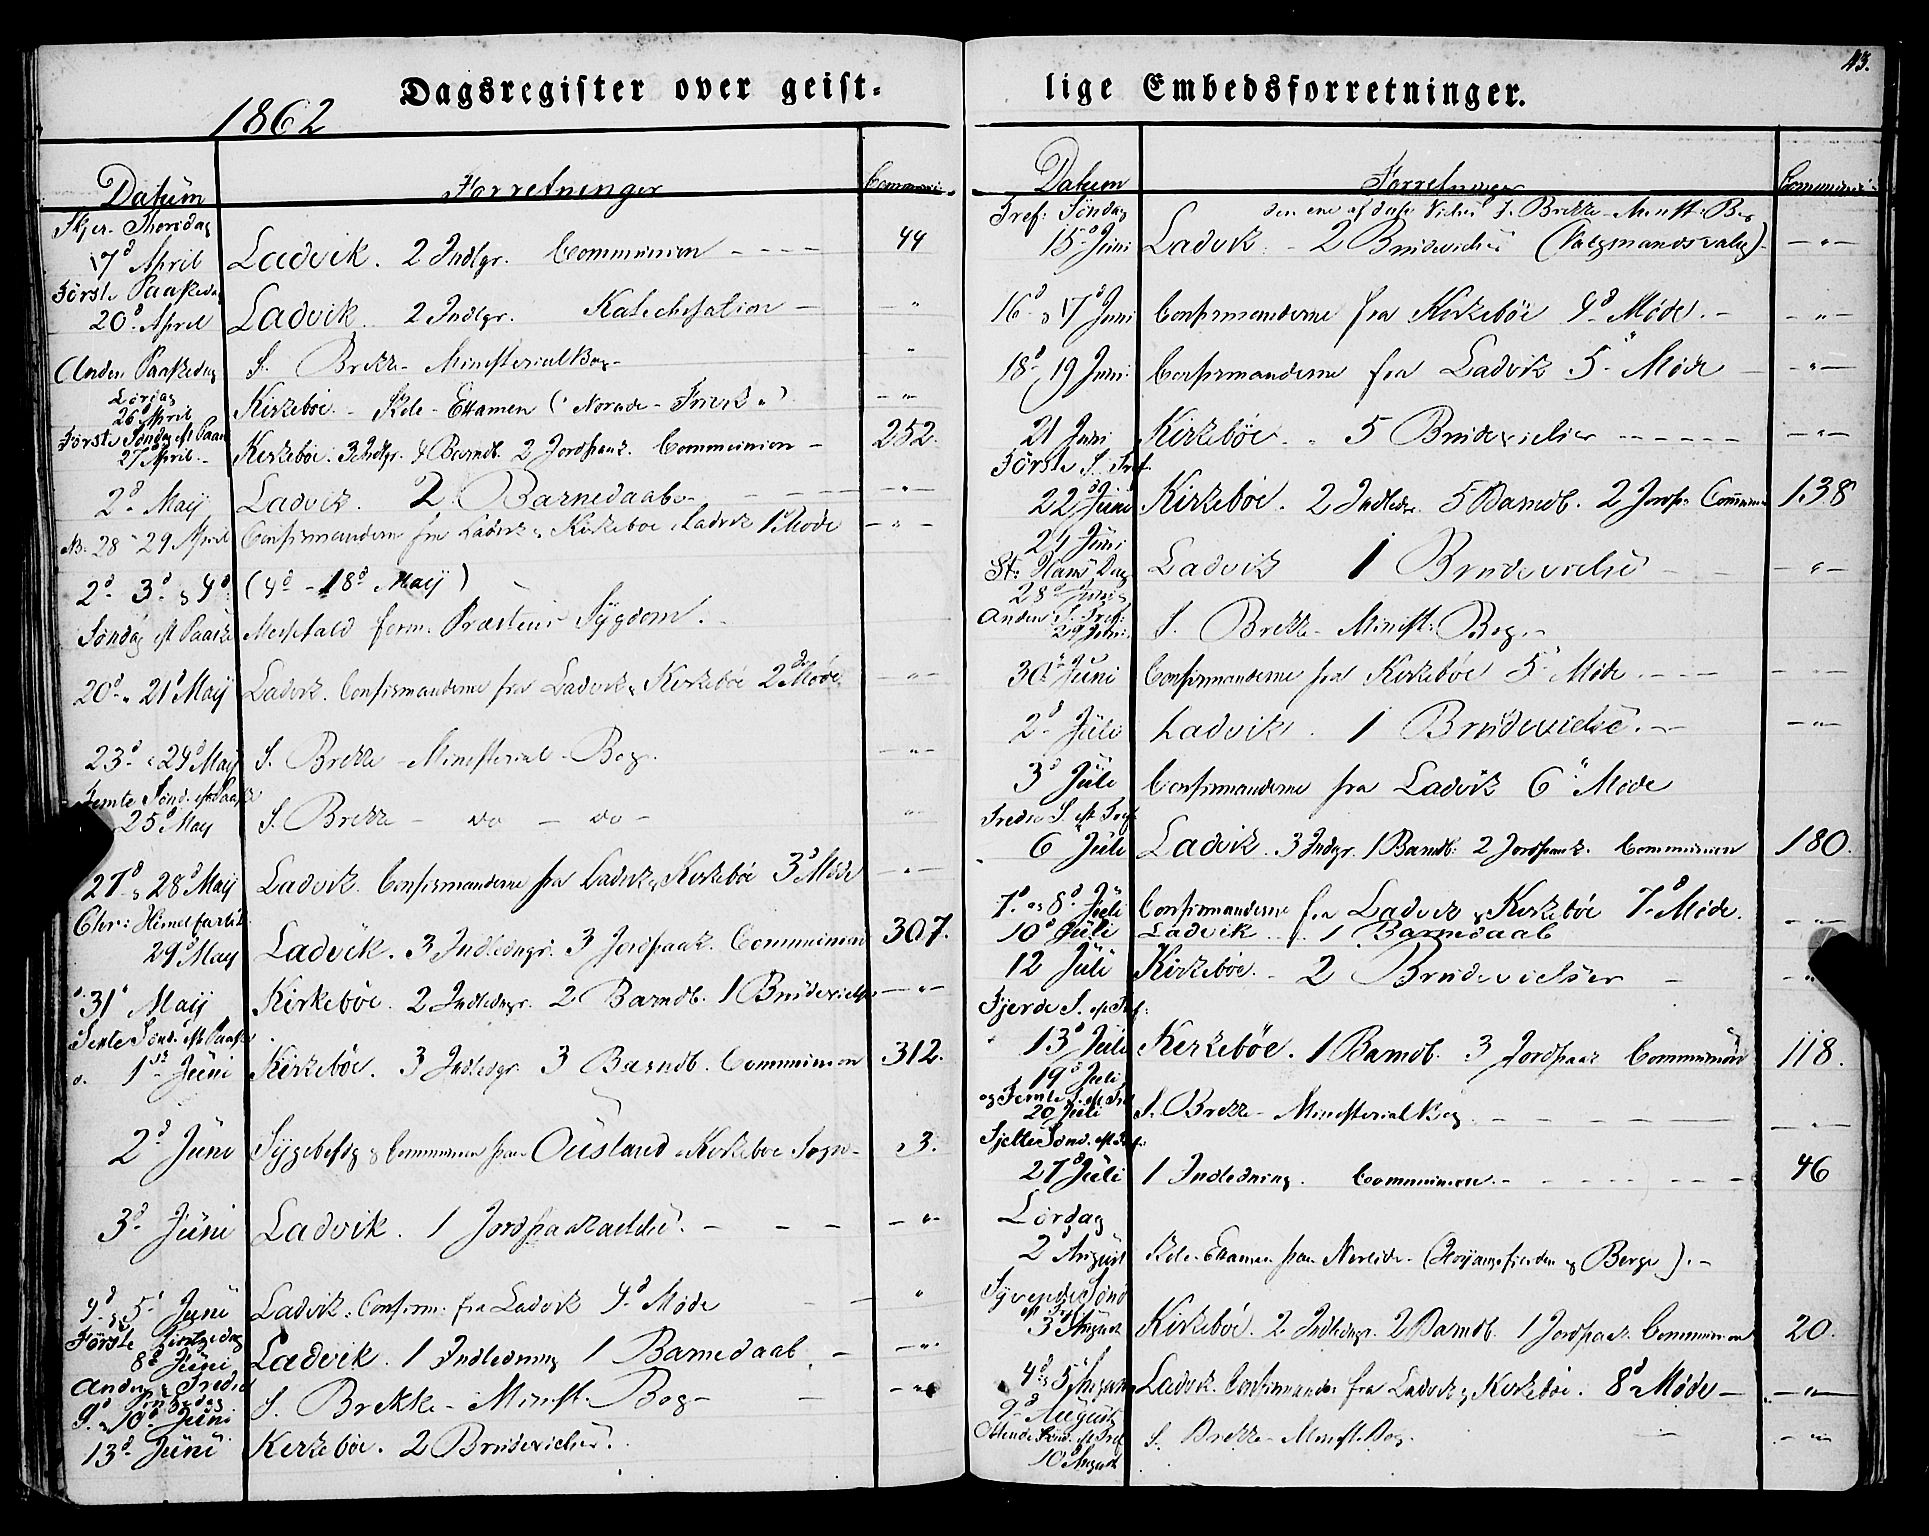 Dagsregister over geist-
1862
Datum Forretninger
Skjær-Thorsdag
17d April Ladvik. 2 Indlgr. Communion 44
Første Paaskedag
20d April Ladvik. 2 Indlgr. Katechisation
Anden Paaskedag S. Brekke - Ministerial Bog
Lørdag
26d April Kirkebøe
Første Søndag eft Paas
27 April Kirkebøe. 3 Indlgr. 4 Barndb. 2 Jordpaak. Communion 252.
2d Maij Ladvik. 2 Barnedaabe
NB. 28 29 April Confirmanderne fra Ladvik & Kirkeboe Ladvik 1 Møde
2d 3d & 4d (4d - 18d Maij)
Søndag eft Paaske Messefald form. Præstens Sÿgdom.
20d 21d Maij Ladvik. Confirmanderne fra Ladvik & Kirkebøe 2d Møde
23d & 24d Maij S. Brekke - Ministerial-Bog.
Femte Sønd. eft Paaske
25d Maij S. Brekke - do - do -
27d & 28d Maij Ladvik. Confirmanderne fra Ladvik & Kirkebøe 3d Møde
Chr: Himelfartsd.
29d Maij Ladvik. 3 Indledngr. 3 Jordpaak. Communion 307.
31 Maij Kirkebøe. 2 Indledngr. 2 Barndb. 1 Brüdevielse
Sjente Sønd. eft Paaske
1ste Jüni Kirkebøe. 3 Indledgr. 3 Barndb. Communion 312.
2d Jüni Sÿgebesøg & Communion paa Oüsland Kirkeboe Sogn 3.
3d Jüni Ladvik. 1 Jordpaakastelse.
4d & 5d Juni Ladvik. Confirm. fra Ladvik 4d Møde
Første Pintzedag
8d Jüni Ladvik. 1 Indledning 1 Barnedaab
Anden & Tredie
Pintzedag
9d & 10d Juni S. Brekke - Minist-Bog
13d Jüni Kirkebøe. 2 Brüdevielser.
lige Embedsforretninger.
Datum Forretninger
Tref: Søndag den ene af disse Vielser S. Brekke Minist: Bog
15d Juni Ladvik. 2 Brüdevielser (Valgmandsvalg)
16d & 17d Juni Confirmanderne fra Kirkebøe 4d Møde.
18d, 19 Juni Confirmanderne fra Ladvik 5 Møde
21 Juni Kirkebøe. 5 Brüdevielser
Første S. Tref.
22 Juni Kirkebøe. 2 Indledngr. 5 Barndb. 2 Jordp. Commun 138
24 Jüni
St: Hans Dag Ladvik 1 Brüdevielse
28d Juni
Anden S. Tref:
29 Juni S. Brekke - Minist: Bog.
30d Juni Confirmanderne fra Kirkebøe 5 Møde.
2d Jüli Ladvik. 1 Brüdevielse.
3d Jüli Confirmanderne fra Ladvik 6 Møde
Tredie S. eft Tref.
6 Jüli Ladvik. 3 Indgr. 1 Barndb. 2 Jordpaak. Communion 180.
7d og 8d Jüli Confirmanderne fra Ladvik & Kirkebøe 7d Møde.
10d Jüli Ladvik 1 Barnedaab
12 Jüli Kirkebøe. 2 Brüdevielser
Fjerde S. eft Tref:
13d Jüli Kirkebøe. 1 Barndb. 3 Jordpaak Communion 118.
19d Jüli
og Femte S. eft Tref
20 Jüli S. Brekke - Ministerial Bog
Sjette Sønd. eft Tref:
27d Jüli 1 Indledning. Communion. 46
Lørdag
2d August
Syvende Sønd
eft Tref
3d August Kirkebøe. 2 Indledngr. 2 Barndb. 1 Jordpaak. Communion 20.
4d & 5 August Ladvik. Confirmander fra Ladvik & Kirkebøe. 8d Møde
9d August
Ottende Sønd. eft Tref
10 August S. Brekke - Minist Bog